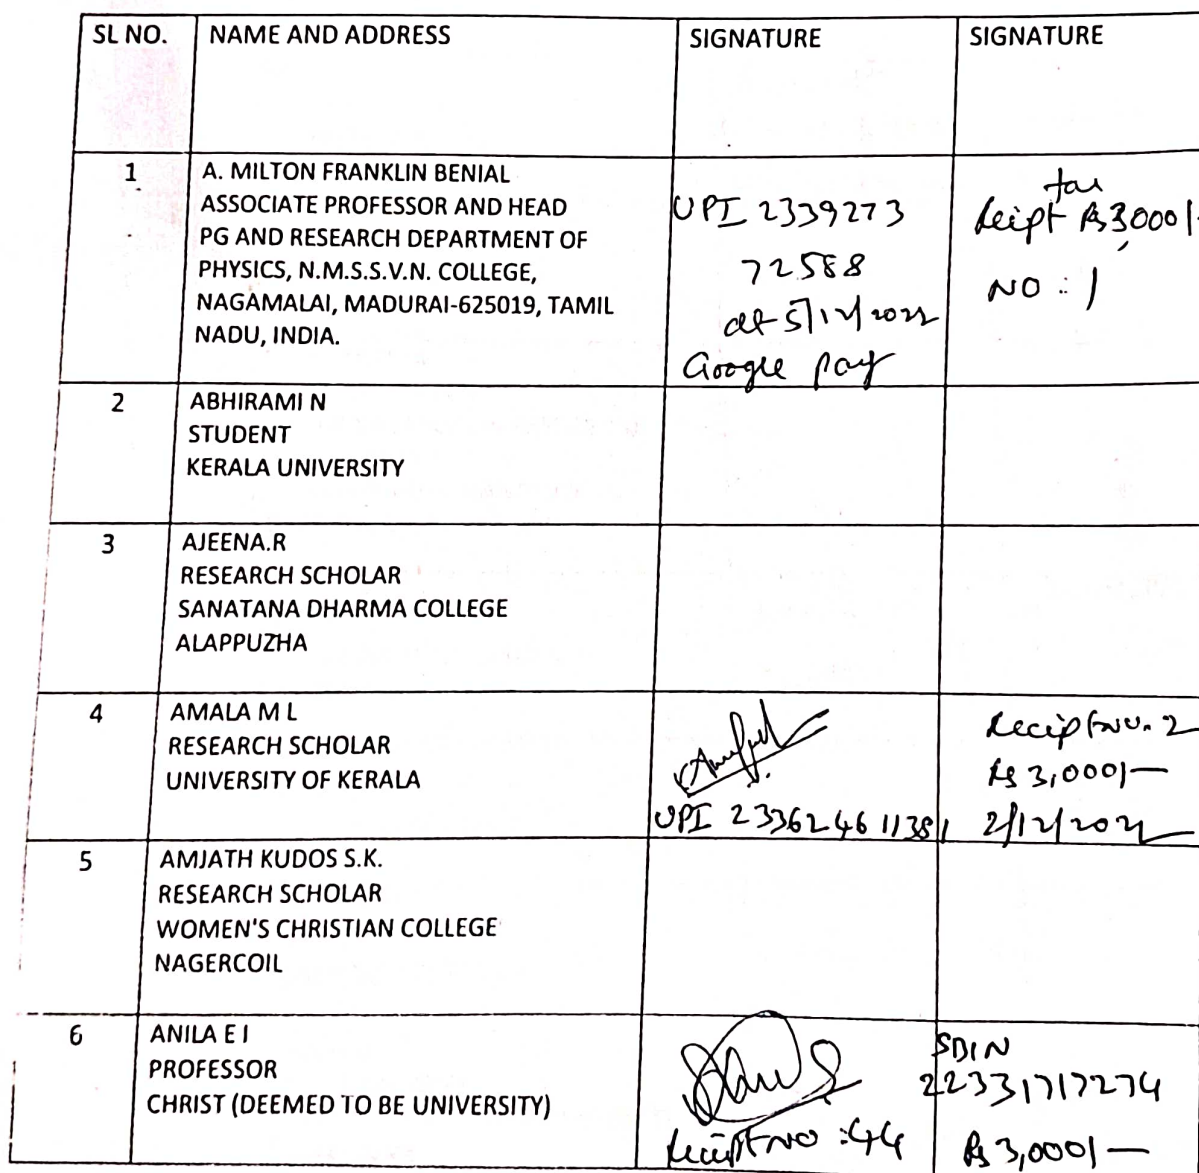 SL NO. NAME AND ADDRESS SIGNATURE SIGNATURE
1
A. MILTON FRANKLIN BENIAL
ASSOCIATE PROFESSOR AND HEAD
PG AND RESEARCH DEPARTMENT OF
PHYSICS, N.M.S.S.V.N. COLLEGE,
NAGAMALAI, MADURAI-625019, TAMIL
NADU, INDIA.
UPI 2339273
72588
5/12/2022
Google pay
Rs 3000/-
NO : 1
2
ABHIRAMI N
STUDENT
KERALA UNIVERSITY
3
AJEENA.R
RESEARCH SCHOLAR
SANATANA DHARMA COLLEGE
ALAPPUZHA
4
AMALA M L
RESEARCH SCHOLAR
UNIVERSITY OF KERALA
UPI 233624611381
Recipt No. 2
Rs 3,000/-
2/12/2022
5
AMJATH KUDOS S.K.
RESEARCH SCHOLAR
WOMEN'S CHRISTIAN COLLEGE
NAGERCOIL
6
ANILA E I
PROFESSOR
CHRIST (DEEMED TO BE UNIVERSITY)
Recipt No : 44
SBIN
22331717274
Rs 3,000/-